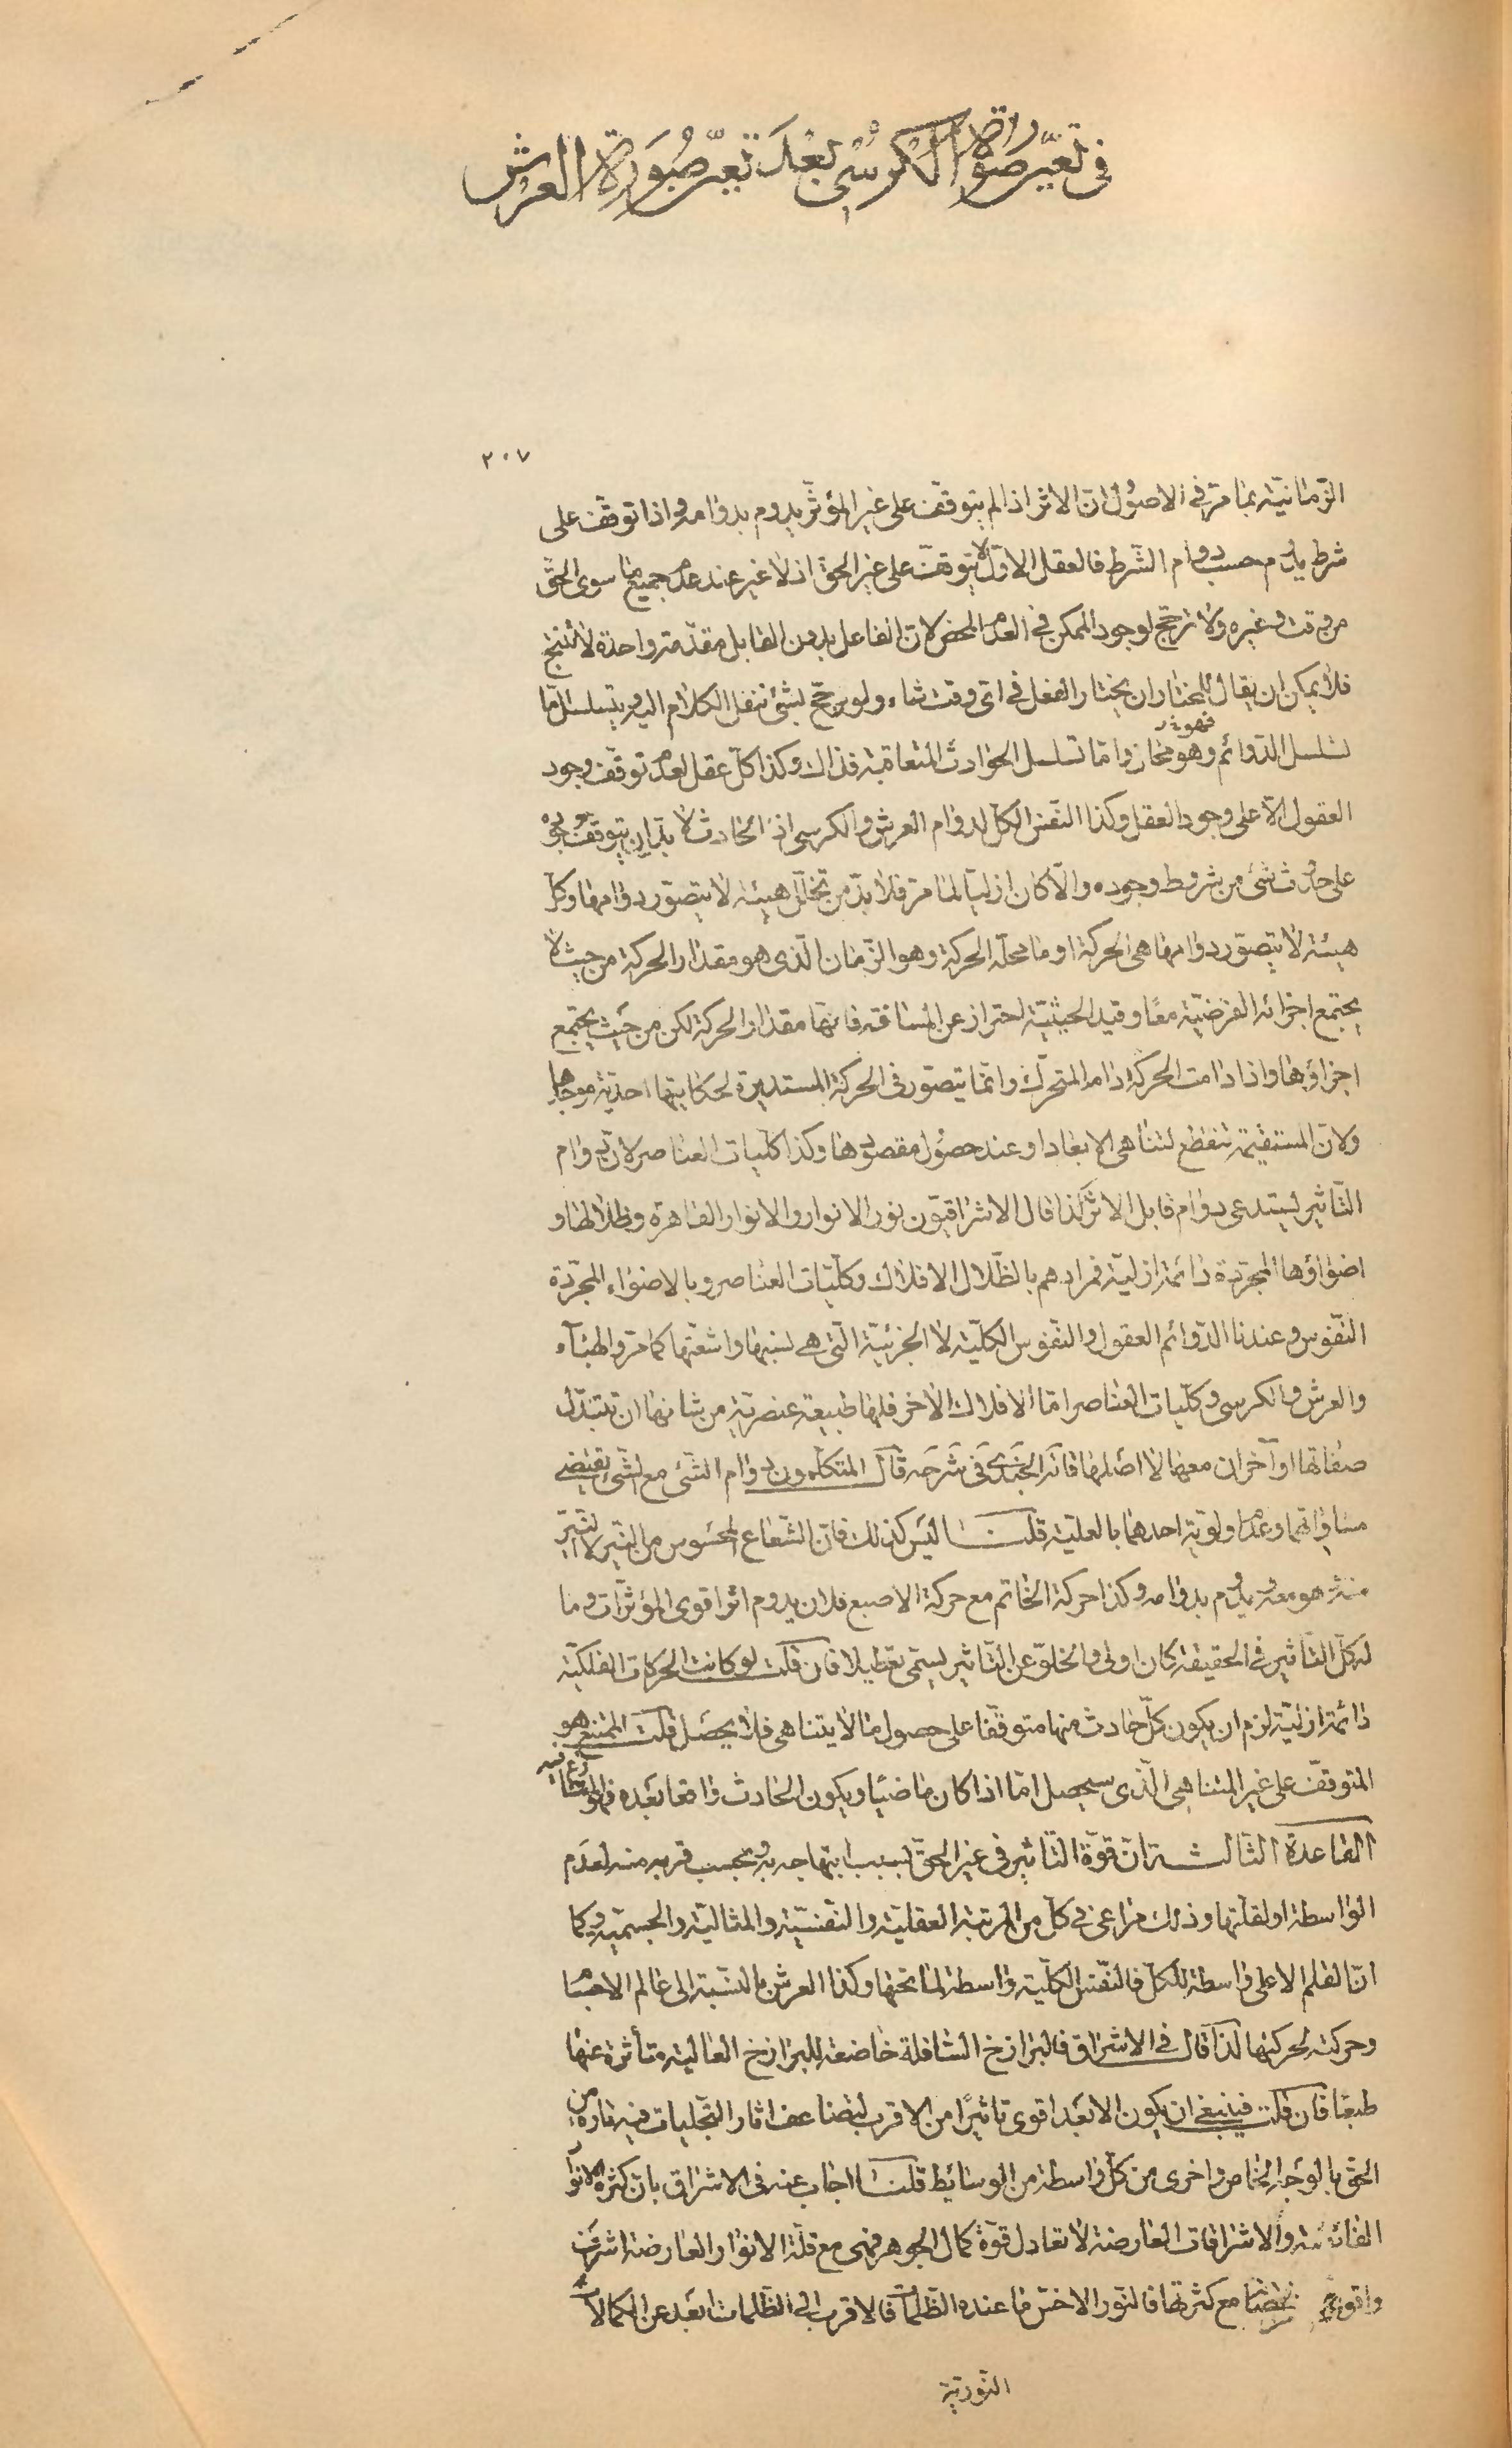 فی تعیّن صورة الکرسی بعد تعیّن صورة العرش
٢٠٧
الزّمانیّة بما مرّ فی الاصول انّ الاثر اذا لم یتوقّف علی غیر المؤثّر یدوم بدوامه و اذا توقّف علی
شرط یدوم حسب دوام الشّرط فالعقل الاوّل لا یتوقّف علی غیر الحق اذ لا غیر عند عدم جمیع ما سوی الحقّ
من وقت و غیره ولا ترجّح لوجود الممکن فی العدم المحض لانّ الفاعل بدون القابل مقدّمة واحدة لا تنتج
فلا یمکن ان یقال للمختار ان یختار الفعل فی ایّ وقت شاء ولو یرجّح بشئ ننقل الکلام الیه و یتسلسل امّا
تسلسل الدّوائم وهو محال وامّا تسلسل الحوادث المتعاقبة فذاک وکذا کلّ عقل لعدم توقّف وجود
العقول الّا علی وجود العقل وکذا النّفس الکلّ لدوام العرش والکرسی اذ الحادث لا بدّ ان یتوقّف وجوده
علی حدوث شئ من شروط وجوده والّا کان ازلیّا لما مرّ فلا بدّ من تخلّل هیئة لا یتصوّر دوامها وکلّ
هیئة لا یتصوّر دوامها هی الحرکة او ما محلّه الحرکة وهو الزّمان الّذی هو مقدار الحرکة من حیث لا
یجتمع اجزائه الفرضیّة معًا وقید الحیثیّة احتراز عن المسافة فانّها مقدار الحرکة لکن من حیث یجتمع
اجزاؤها واذا دامت الحرکة دام المتحرّک وانّما یتصوّر فی الحرکة المستدیرة لحکایتها احدیّة موجدها
ولانّ المستقیمة تنقطع لتناهی الابعاد او عند حصول مقصودها وکذا کلّیات العناصر لانّ دوام
التّأثیر یستدعی دوام قابل الاثر لذا قال الاشراقیّون نور الانوار والانوار القاهرة وظلالها و
اضواؤها المجرّدة دائمة ازلیّة فمرادهم بالظّلال الافلاک وکلّیات العناصر وبالاضواء المجرّدة
النّفوس وعندنا الدّوائم العقول والنّفوس الکلّیّة لا الجزئیّة الّتی هی نسبها واشعّتها کما مرّ والهباء
والعرش والکرسی وکلّیات العناصر امّا الافلاک الاخر فلها طبیعة عنصریّة من شانها ان تتبدّل
صفاتها او آخران معها لا اصلها قاله الجندی فی شرحه قال المتکلّمون دوام الشّئ مع الشّئ یقتضی
مساواتهما وعدم اولویّة احدهما بالعلّیة قلنا لیس کذلک فانّ الشّعاع المحسوس من النّیّر لا النّیّر
منه هو معه و یدوم بدوامه وکذا حرکة الخاتم مع حرکة الاصبع فلان یدوم اثر اقوی المؤثّرات وما
له کلّ التّأثیر فی الحقیقة کان اولی والخلوّ عن التّاثیر یسمّی تعطیلا فان قلت لو کانت الحرکات الفلکیّة
دائمة ازلیّة لزم ان یکون کلّ حادث منها متوقّفا علی حصول ما لا یتناهی فلا یحصل قلت الممتنع هو
المتوقّف علی غیر المتناهی الّذی سیحصل امّا اذا کان ماضیًا ویکون الحادث واقعا بعده فهو
القاعدة الثالثة انّ قوّة التّأثیر فی غیر الحقّ بسبب ابتهاجه به و بحسب قربه منه لعدم
الواسطة او لقلّتها وذلک مراعی فی کلّ من المرتبة العقلیّة والنّفسیّة والمثالیّة والجسمیّة وکما
انّ القلم الاعلی واسطة للکلّ فالنّفس الکلّیة واسطة لما تحتها وکذا العرش بالنّسبة الی عالم الاجسام
وحرکته لحرکتها لذا قال فی الاشراق فالبرازخ السّافلة خاضعة للبرازخ العالیة متأثّرة عنها
طبعًا فان قلت فینبغی ان یکون الابعد اقوی تاثیرًا من الاقرب لتضاعف اثار التّجلیات فیه تارة من
الحقّ بالوجه الخاص واخری من کلّ واسطة من الوسائط قلنا اجاب عنه فی الاشراق بانّ کثرة الانوار
الفائضة والاشراقات العارضة لا تعادل قوّة کمال الجوهر فهی مع قلّة الانوار العارضة اشرف
مع کثرتها فالنّور الاخسّ ما عنده الظّلمات فالاقرب الی الظّلمات ابعد عن الکمالات
النّوریّة